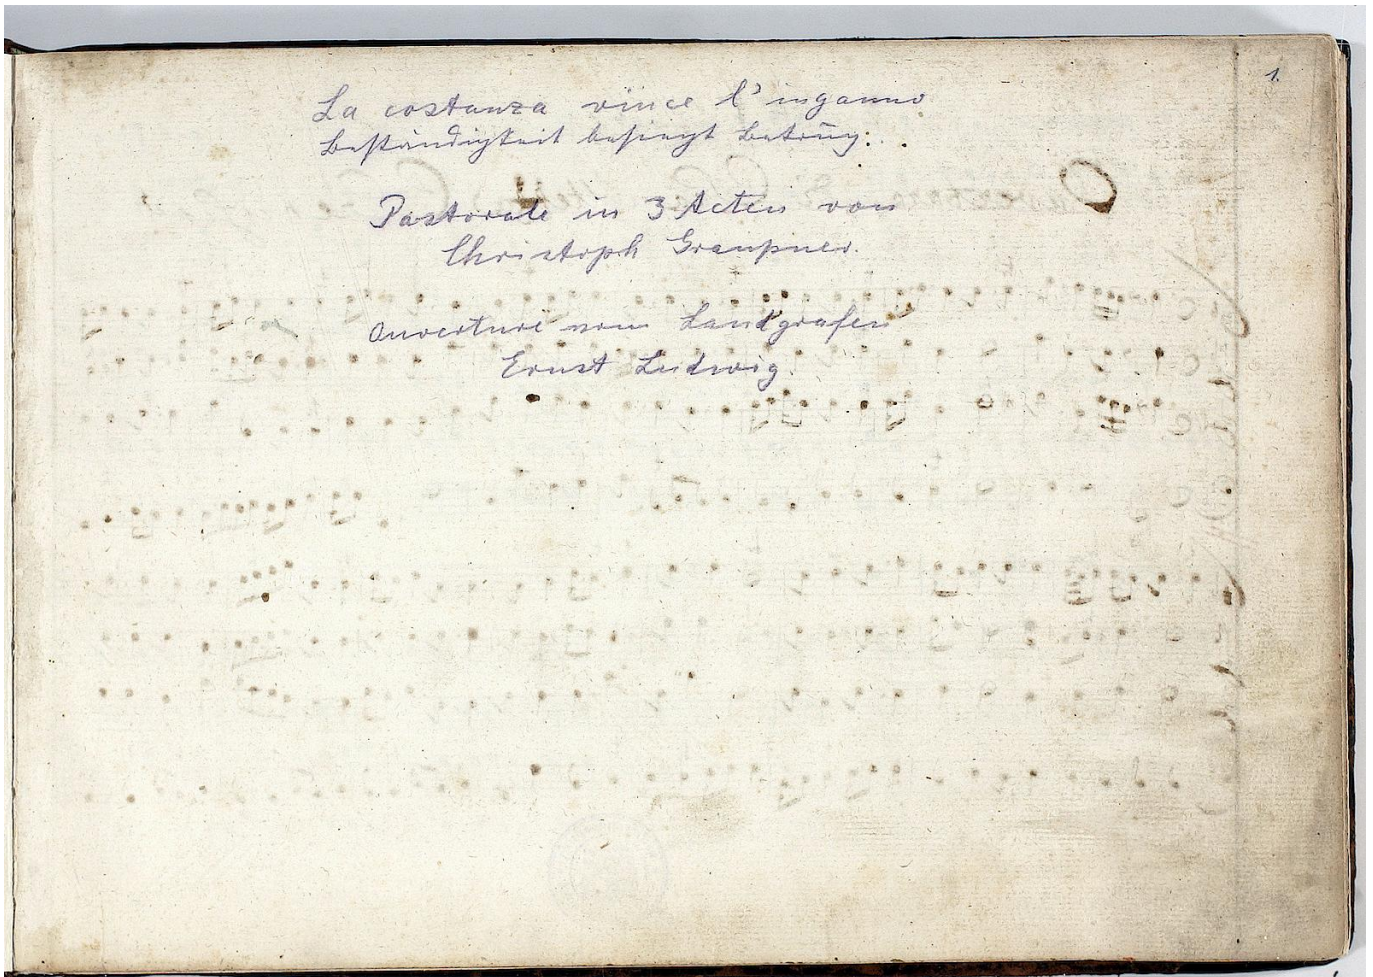 1.
La costanza vince l'inganno
Beständigkeit besiegt Betrug.
Pastorale in 3 Acten von
Christoph Graupner.
Ouverture vom Landgrafen
Ernst Ludwig.